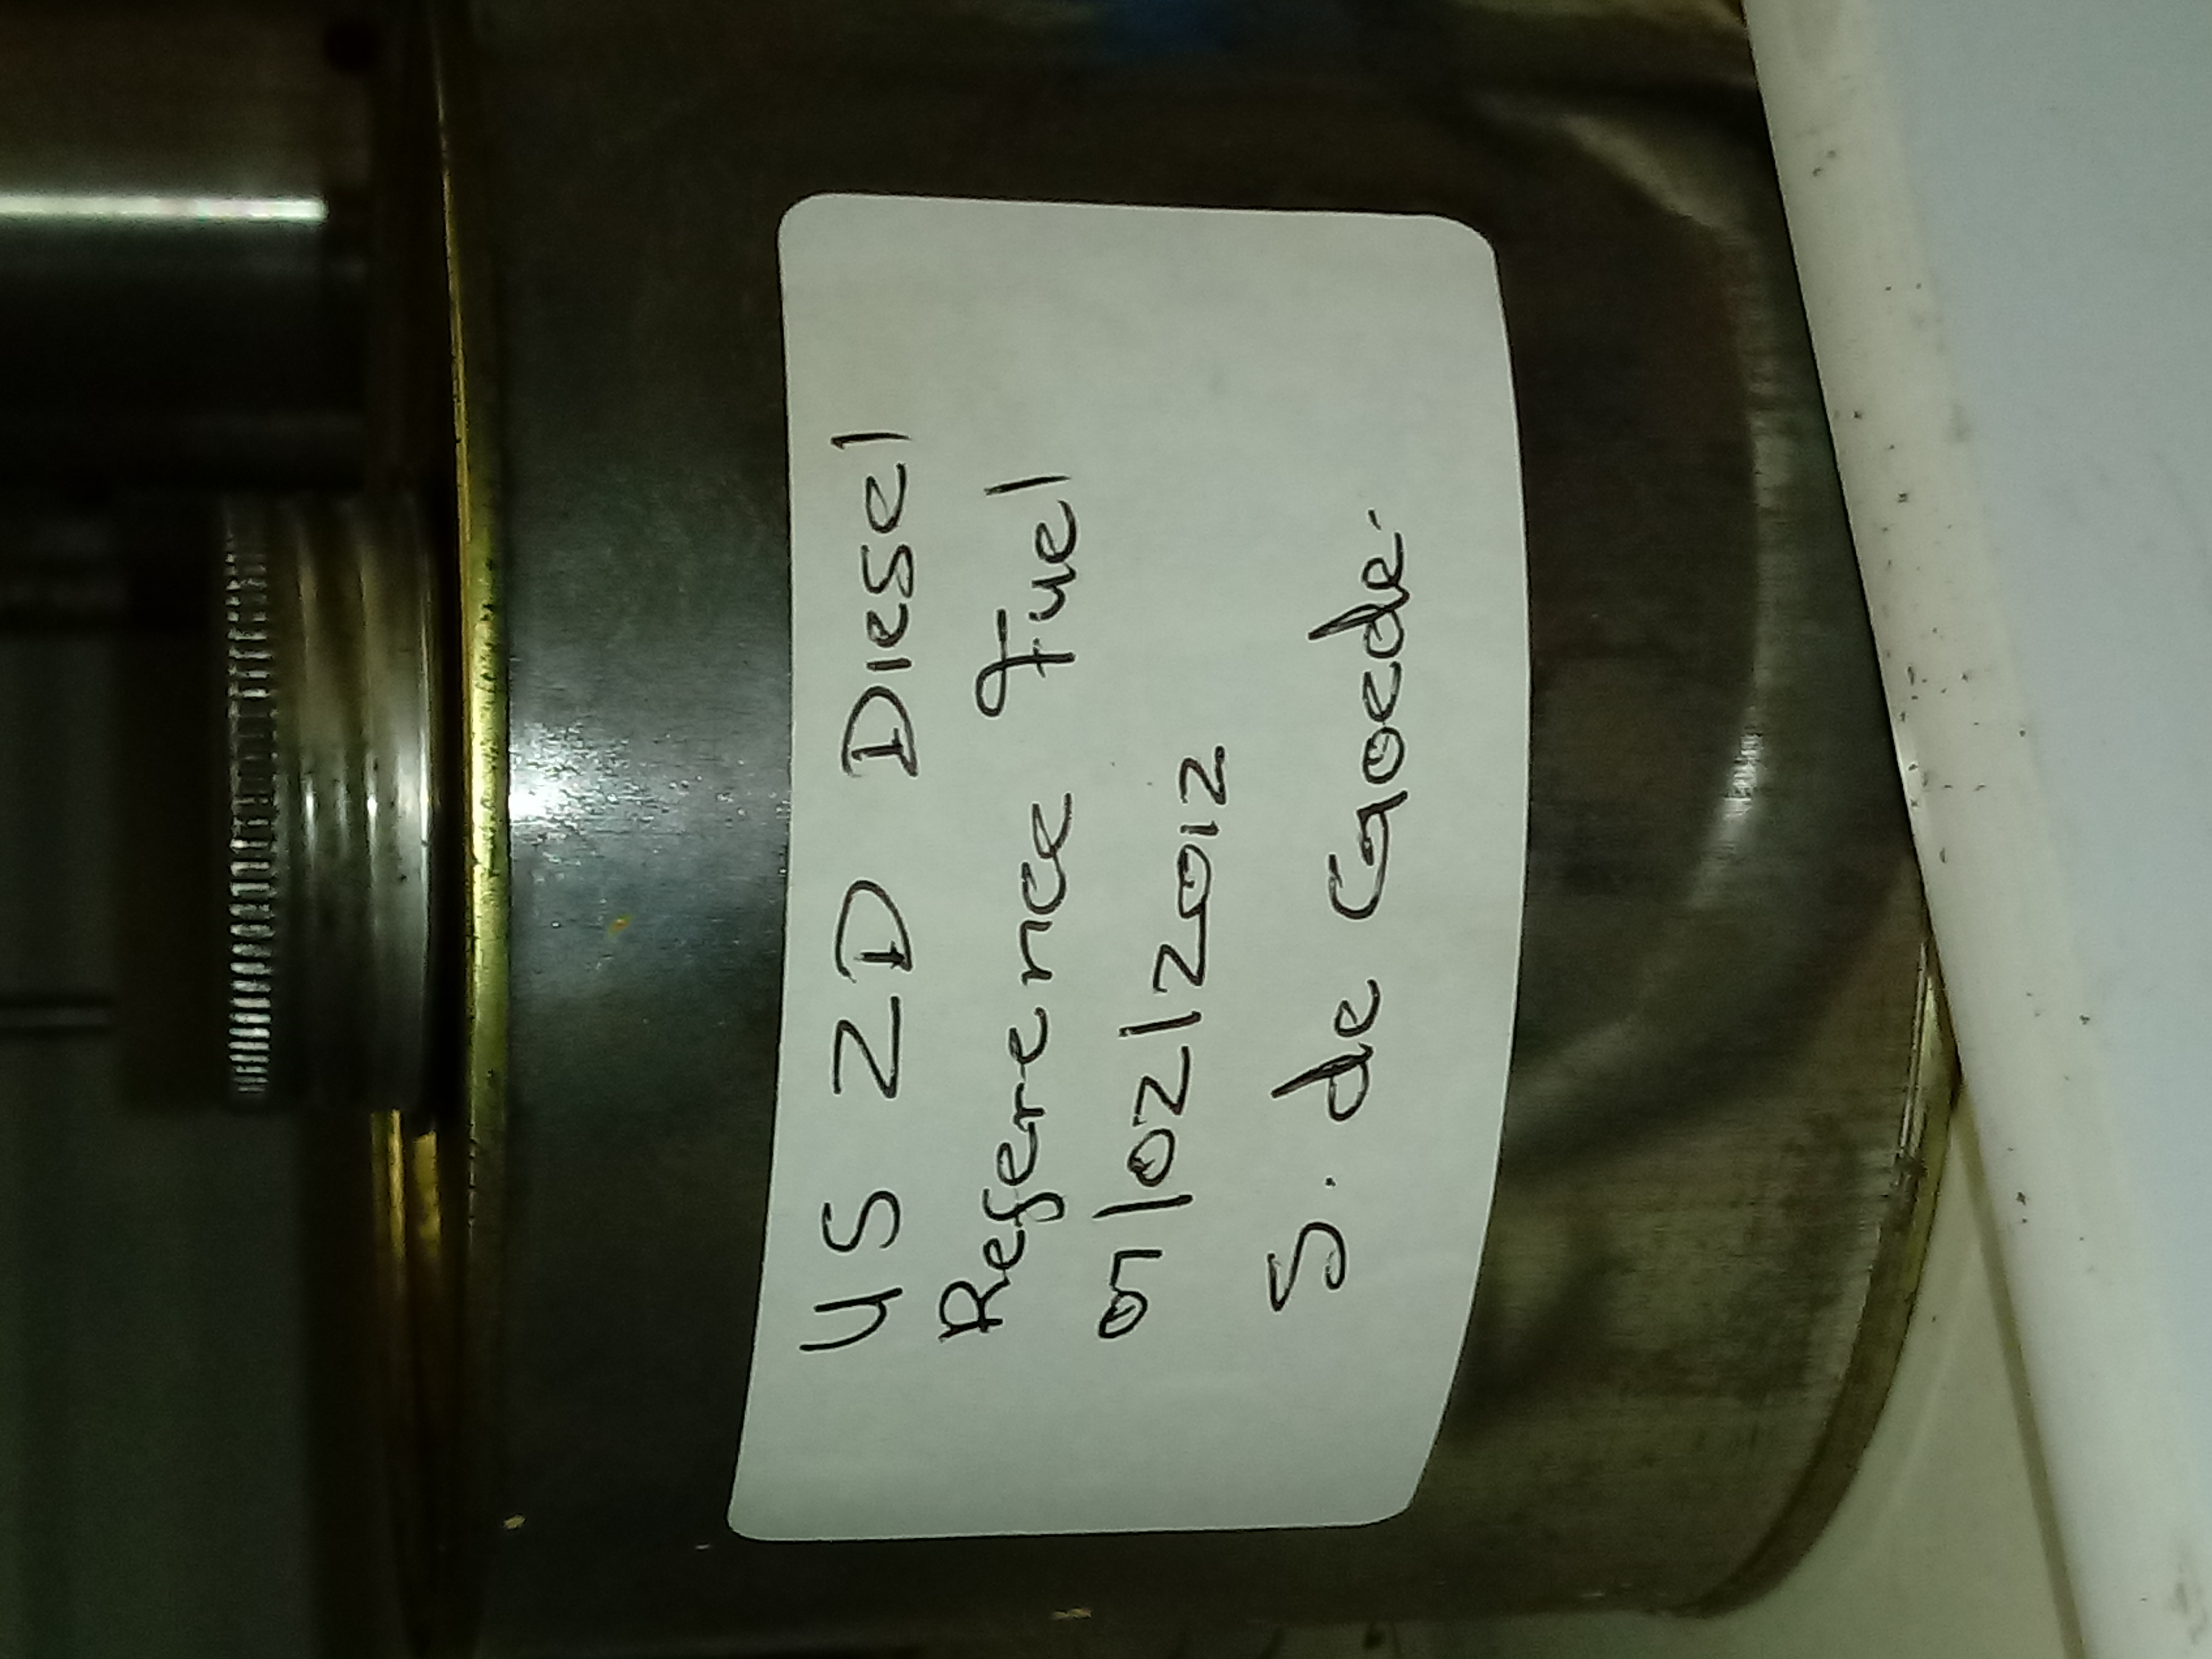 US 2D Diesel
Reference Fuel
07/02/2012
S. de Goede